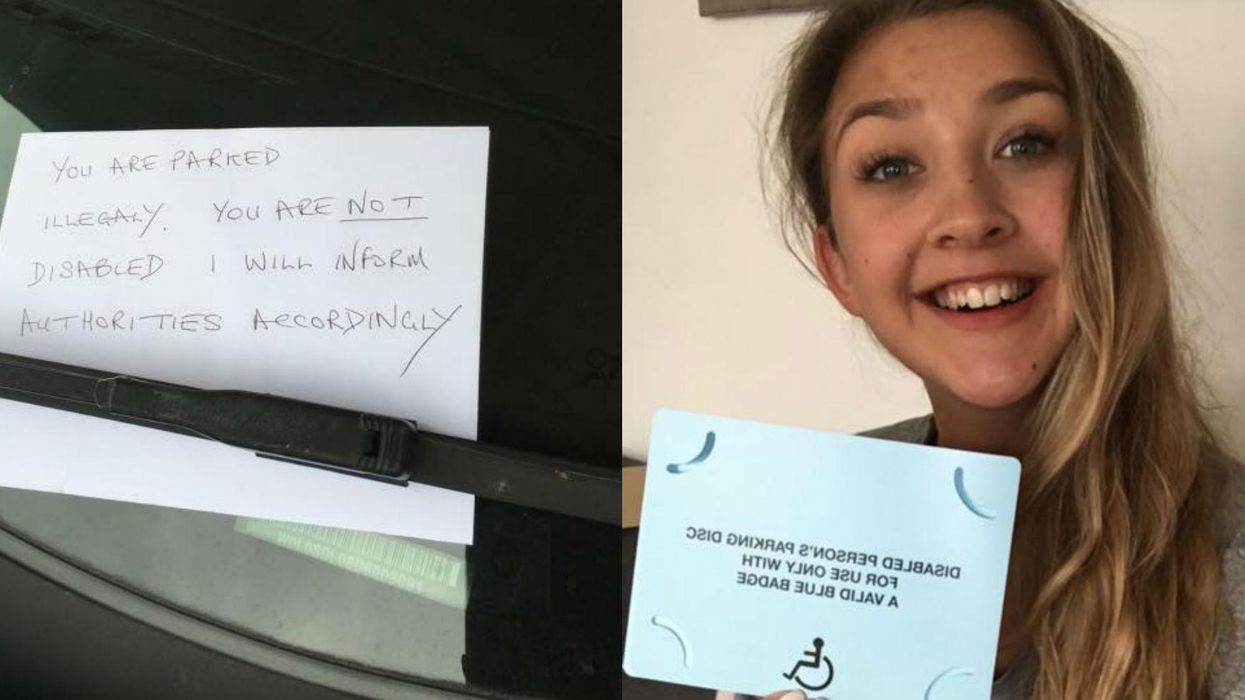 YOU ARE PARKED
ILLEGALY. YOU ARE NOT
DISABLED I WILL INFORM
AUTHORITIES ACCORDINGLY
DISABLED PERSON'S PARKING DISC
FOR USE ONLY WITH
A VALID BLUE BADGE